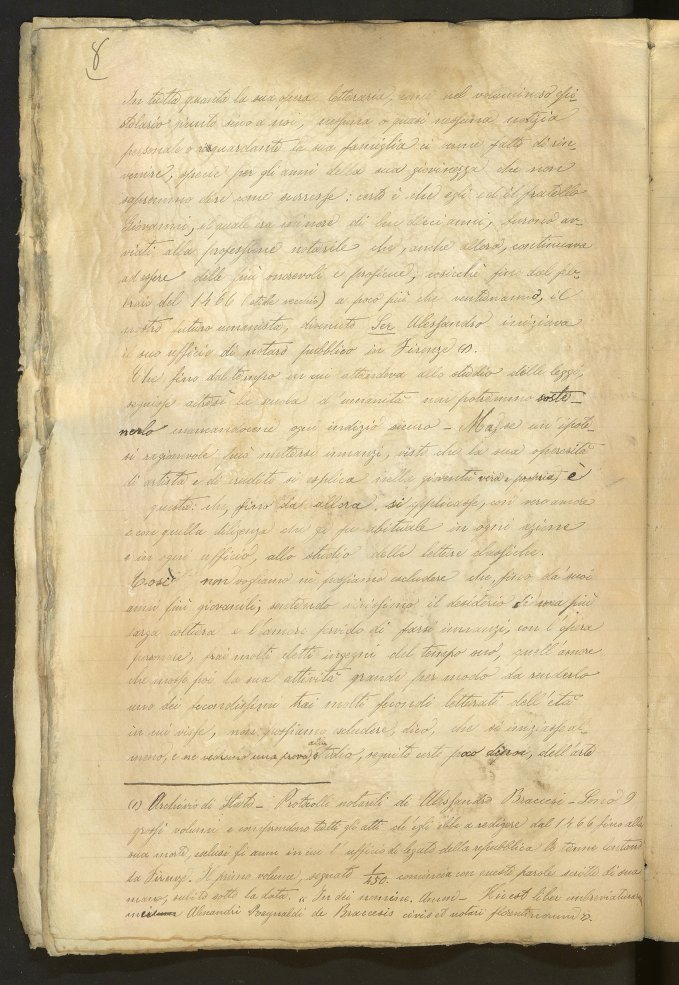 8
In tutta quanta la sua opera letteraria, come nel voluminoso epi-
stolario giunto sino a noi, nessuna o quasi nessuna notizia
personale o risguardante la sua famiglia ci venne fatto di rin-
venire, specie per gli anni della sua giovinezza che non
sapremmo dire come scorresse: certo è che egli ed il fratello
Giovanni, il quale era minore di lui dieci anni, furono av-
viati alla professione notarile che, anche allora, continuava
ad essere delle più onorevoli e proficue; cosicchè fino dal feb-
braio del 1466 (stile vecchio) a poco più che ventunanno, il
nostro futuro umanista, divenuto Ser Alessandro iniziava
il suo ufficio di notaro pubblico in Firenze (1).
Che fino dal tempo in cui attendeva allo studio delle leggi,
seguisse altresì la scuola d'umanità non potremmo soste-
nerlo mancandocene ogni indizio sicuro - Ma, se un'ipote-
si ragionevole può mettersi innanzi, visto che la sua operosità
di artista e di erudito si esplica nella gioventù vera e propria, è
questa: che, fino da allora, si applicasse, con vero amore
e con quella diligenza che gli fu abituale in ogni azione
e in ogni ufficio, allo studio delle lettere classiche.
Così non vogliamo nè possiamo escludere che, fino da' suoi
anni più giovanili, sentendo vivissimo il desiderio di una più
larga coltura e l'amore fervido di farsi innanzi, con l'opera
perenne, fra i molti eletti ingegni del tempo suo, quell'amore
che mosse poi la sua attività grande per modo da renderlo
uno dei secondissimi tra i molti fecondi letterati dell'età
in cui visse, non possiamo escludere, dico, che si iniziasse al-
meno, e ne vedremo una prova, allo studio, seguito certo poco, dell'arte
(1) Archivio di Stato - Protocolli notarili di Alessandro Braccesi - Sono 9
grossi volumi e comprendono tutti gli atti ch'egli ebbe a redigere dal 1466 fino alla
sua morte, esclusi gli anni in cui l'ufficio di legato della repubblica lo tenne lontano
da Firenze. Il primo volume, segnato 1/450. comincia con queste parole scritte di sua
mano, subito sotto la data. "In dei nomine. Amen - Hic est liber imbreviaturarum
Alexandri Raynaldi de Braccesis civis et notari florentinorum".